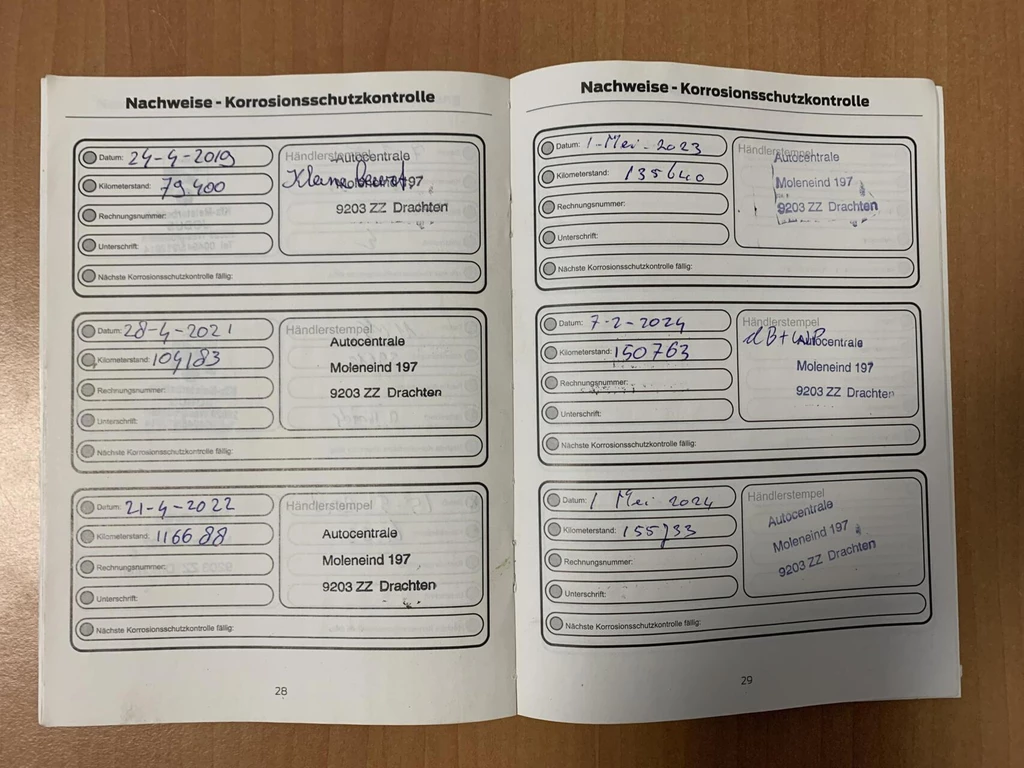 Nachweise - Korrosionsschutzkontrolle
Datum: 24-4-2019
Kilometerstand: 79.400
Rechnungsnummer:
Unterschrift:
Nächste Korrosionsschutzkontrolle fällig:
Händlerstempel
Autocentrale
Moleneind 197
9203 ZZ Drachten
Datum: 28-4-2021
Kilometerstand: 104183
Rechnungsnummer:
Unterschrift:
Nächste Korrosionsschutzkontrolle fällig:
Händlerstempel
Autocentrale
Moleneind 197
9203 ZZ Drachten
Datum: 21-4-2022
Kilometerstand: 116688
Rechnungsnummer:
Unterschrift:
Nächste Korrosionsschutzkontrolle fällig:
Händlerstempel
Autocentrale
Moleneind 197
9203 ZZ Drachten
28
Nachweise - Korrosionsschutzkontrolle
Datum: 1-Mei-2023
Kilometerstand: 135640
Rechnungsnummer:
Unterschrift:
Nächste Korrosionsschutzkontrolle fällig:
Händlerstempel
Autocentrale
Moleneind 197
9203 ZZ Drachten
Datum: 7-2-2024
Kilometerstand: 150763
Rechnungsnummer:
Unterschrift:
Nächste Korrosionsschutzkontrolle fällig:
Händlerstempel
Autocentrale
Moleneind 197
9203 ZZ Drachten
Datum: 1 Mei 2024
Kilometerstand: 155733
Rechnungsnummer:
Unterschrift:
Nächste Korrosionsschutzkontrolle fällig:
Händlerstempel
Autocentrale
Moleneind 197
9203 ZZ Drachten
29